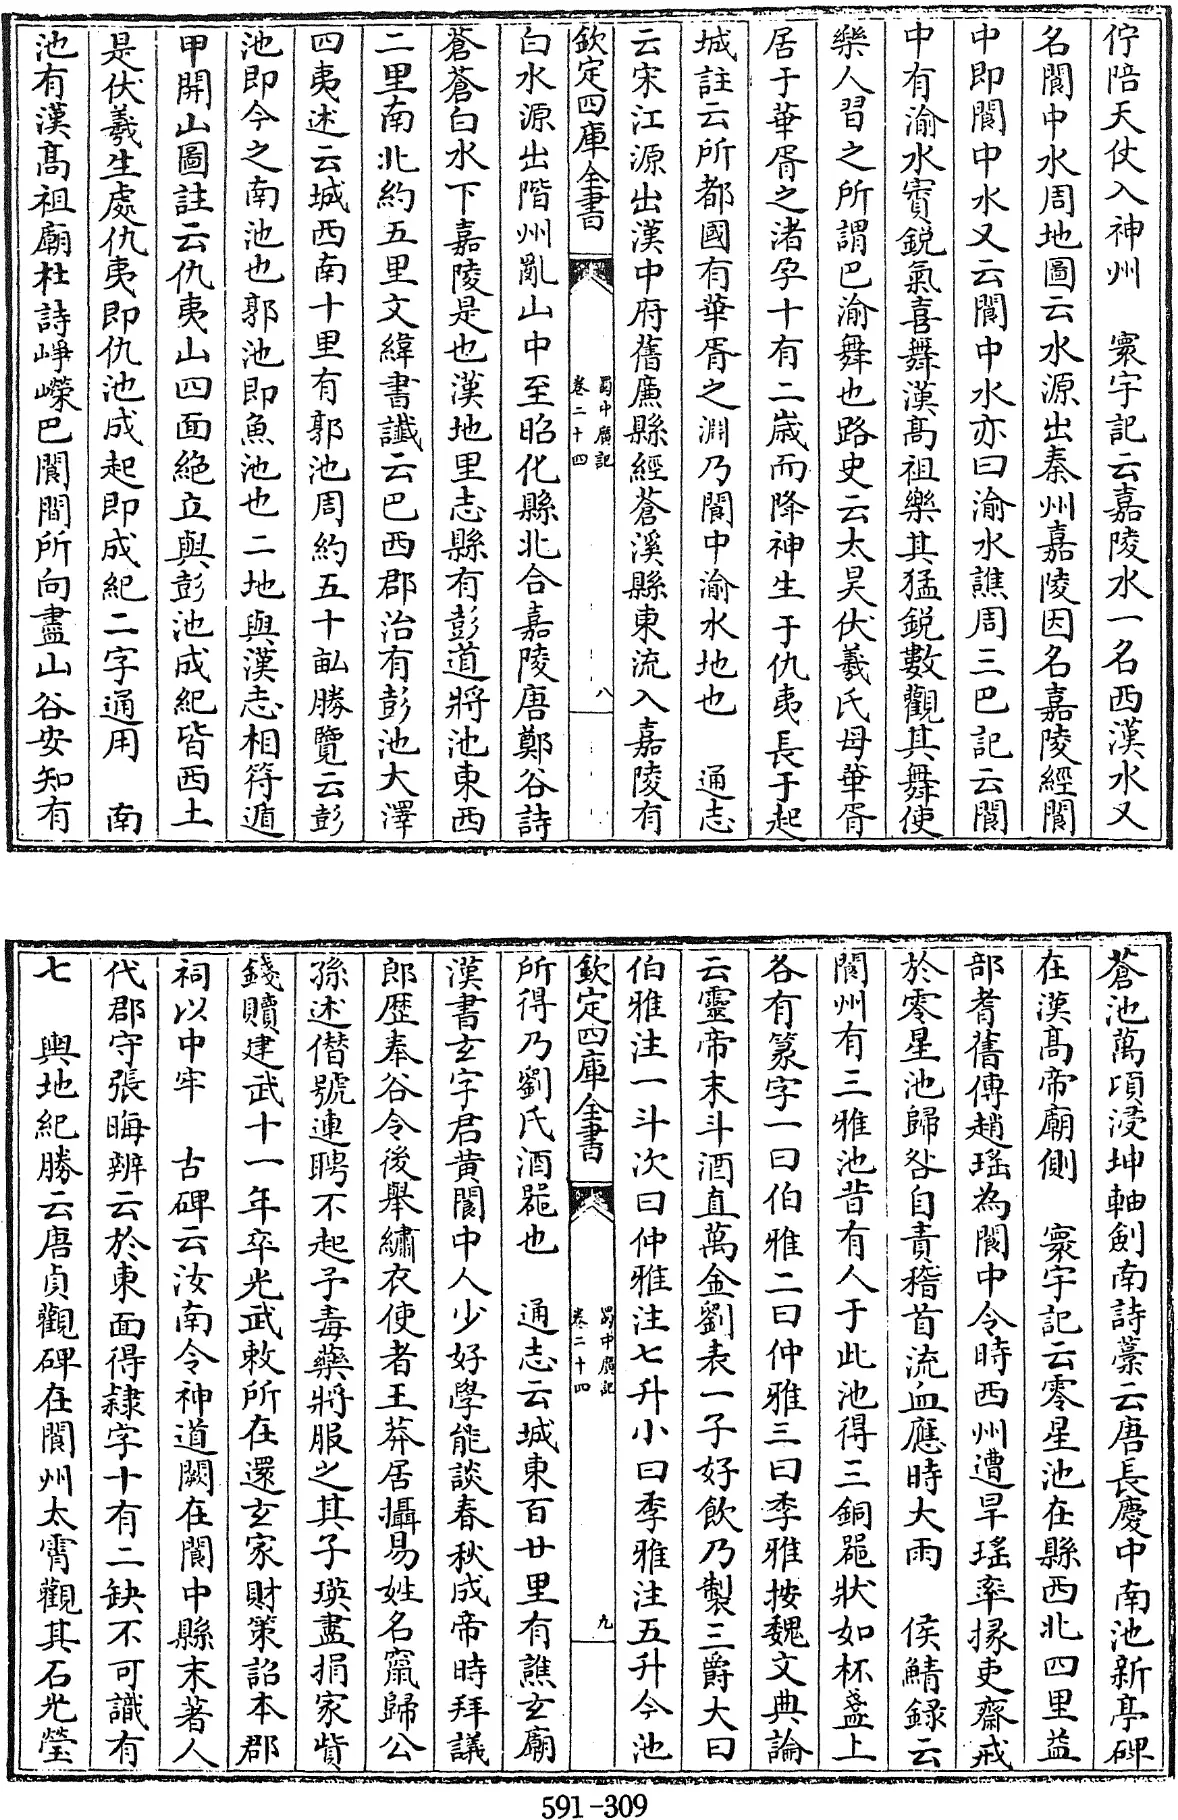 佇陪天仗入神州　寰宇記云嘉陵水一名西漢水又
名閬中水周地圖云水源出秦州嘉陵因名嘉陵經閬
中即閬中水又云閬中水亦曰渝水譙周三巴記云閬
中有渝水賨銳氣喜舞漢髙祖樂其猛銳數觀其舞使
樂人習之所謂巴渝舞也路史云太昊伏羲氏母華胥
居于華胥之渚孕十有二歳而降神生于仇夷長于起
城註云所都國有華胥之淵乃閬中渝水地也　通志
云宋江源出漢中府舊廉縣經蒼溪縣東流入嘉陵有
欽定四庫全書
蜀中廣記
卷二十四
八
白水源出階州亂山中至昭化縣北合嘉陵唐鄭谷詩
蒼蒼白水下嘉陵是也漢地里志縣有彭道將池東西
二里南北約五里文緯書讖云巴西郡治有彭池大澤
四夷述云城西南十里有郭池周約五十畆勝覽云彭
池即今之南池也郭池即魚池也二地與漢志相符遁
甲開山圖註云仇夷山四面絶立與彭池成紀皆西土
是伏羲生處仇夷即仇池成起即成紀二字通用　南
池有漢髙祖廟杜詩崢嶸巴閬間所向盡山谷安知有
蒼池萬頃浸坤軸劍南詩藁云唐長慶中南池新亭碑
在漢髙帝廟側　寰宇記云零星池在縣西北四里益
部耆舊傳趙瑤為閬中令時西州遭旱瑤率掾吏齋戒
於零星池歸咎自責稽首流血應時大雨　侯鯖録云
閬州有三雅池昔有人于此池得三銅噐狀如杯盞上
各有篆字一曰伯雅二曰仲雅三曰季雅按魏文典論
云靈帝末斗酒直萬金劉表一子好飲乃製三爵大曰
伯雅注一斗次曰仲雅注七升小曰季雅注五升今池
欽定四庫全書
蜀中廣記
卷二十四
九
所得乃劉氏酒噐也　通志云城東百廿里有譙玄廟
漢書玄字君黄閬中人少好學能談春秋成帝時拜議
郎歷奉谷令後舉繡衣使者王莽居攝易姓名竄歸公
孫述僭號連聘不起予毒藥將服之其子瑛盡捐家貲
錢贖建武十一年卒光武敕所在還玄家財策詔本郡
祠以中牢　古碑云汝南令神道闕在閬中縣末著人
代郡守張晦辨云於東面得隷字十有二缺不可識有
七　輿地紀勝云唐貞觀碑在閬州太霄觀其石光瑩
591-309